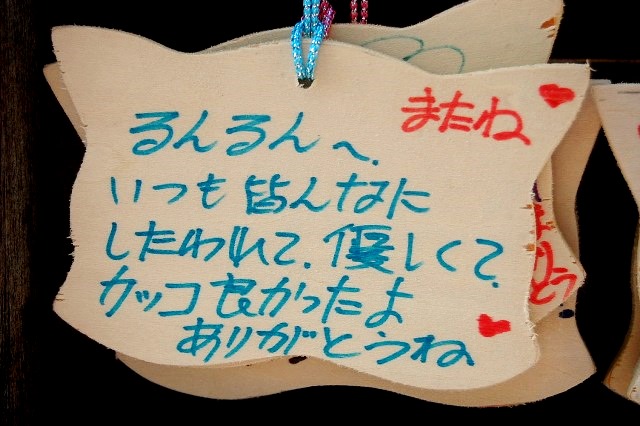 またね
るんるん〜、
いつも皆んなに
したわれて、優しくて、
カッコ良かったよ
ありがとうね